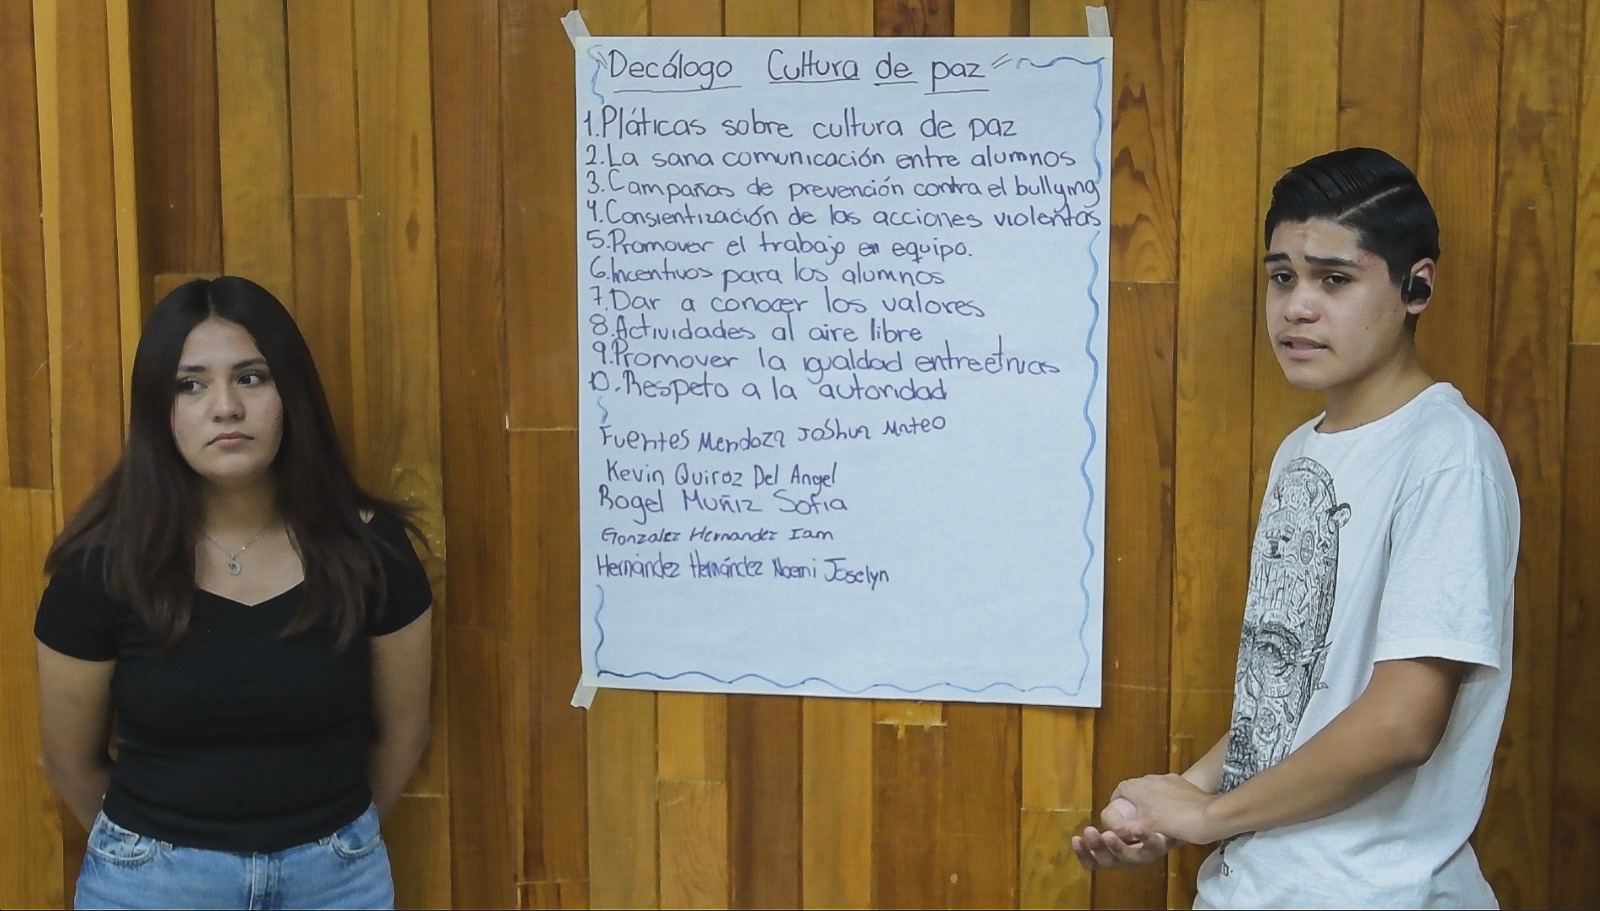 "Decálogo Cultura de paz"
1.Pláticas sobre cultura de paz
2.La sana comunicación entre alumnos
3.Campañas de prevención contra el bullying
4.Consientización de las acciones violentas
5.Promover el trabajo en equipo.
6.Incentivos para los alumnos
7.Dar a conocer los valores
8.Actividades al aire libre
9.Promover la igualdad entre etnias
10.Respeto a la autoridad
Fuentes Mendoza Joshua Mateo
Kevin Quiroz Del Angel
Rogel Muñiz Sofia
Gonzalez Hernandez Iam
Hernández Hernández Noemi Joselyn